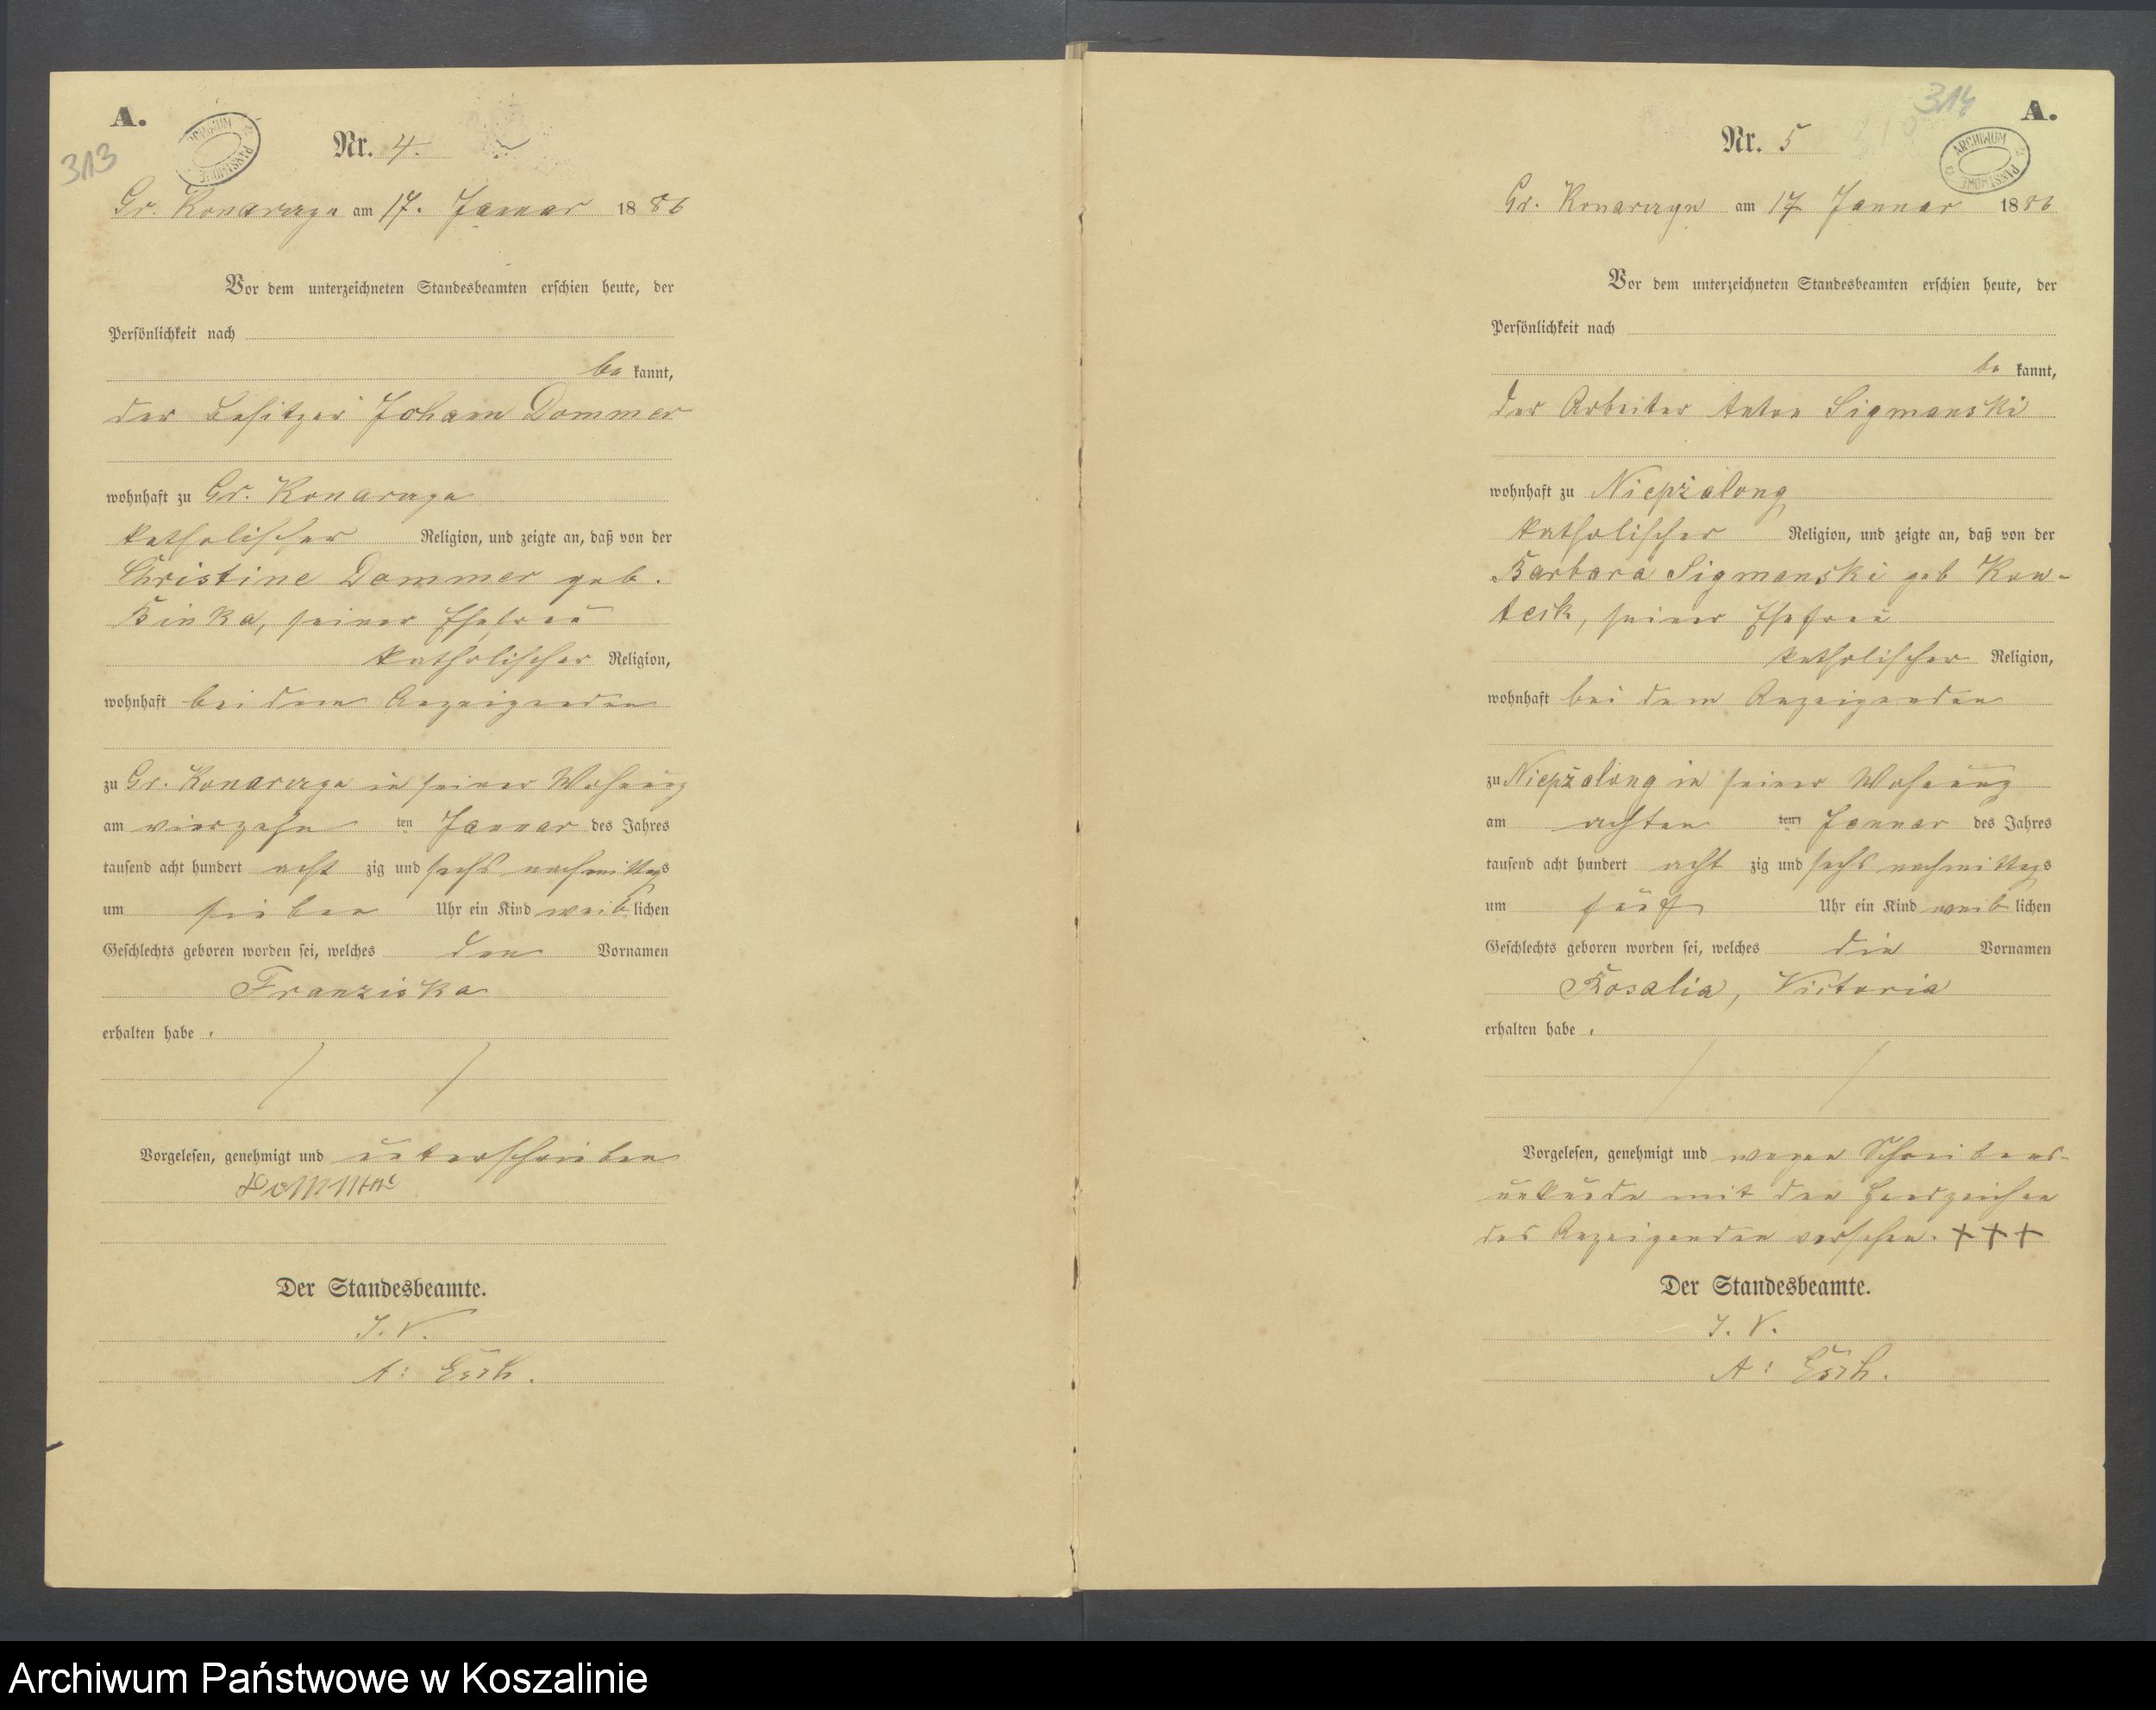 A.
313
ARCHIWUM PAŃSTWOWE
Nr. 4.
Gr. Konarczyn am 17. Januar 1886
Vor dem unterzeichneten Standesbeamten erschien heute, der
Persönlichkeit nach
be kannt,
der Besitzer Johann Dommer
wohnhaft zu Gr. Konarczyn
katholischer Religion, und zeigte an, daß von der
Christine Dommer geb.
Binka, seiner Ehefrau
katholischer Religion,
wohnhaft bei dem Anzeigenden
zu Gr. Konarczyn in seiner Wohnung
am vierzehn ten Januar des Jahres
tausend acht hundert acht zig und sechs nachmittags
um sieben Uhr ein Kind weib lichen
Geschlechts geboren worden sei, welches den Vornamen
Franziska
erhalten habe.
Vorgelesen, genehmigt und unterschrieben
Dommer
Der Standesbeamte.
I. V.
A:
314
A.
ARCHIWUM PAŃSTWOWE
Nr. 5
Gr. Konarczyn am 17 Januar 1886
Vor dem unterzeichneten Standesbeamten erschien heute, der
Persönlichkeit nach
be kannt,
der Arbeiter Anton Sigmanski
wohnhaft zu Niepszalong
katholischer Religion, und zeigte an, daß von der
Barbara Sigmanski geb
seiner Ehefrau
katholischer Religion,
wohnhaft bei dem Anzeigenden
zu Niepszalong in seiner Wohnung
am achten ten Januar des Jahres
tausend acht hundert acht zig und sechs nachmittags
um fünf Uhr ein Kind weib lichen
Geschlechts geboren worden sei, welches die Vornamen
Rosalia, Victoria
erhalten habe.
Vorgelesen, genehmigt und wegen Schreibens-
unkunde mit den Handzeichen
des Anzeigenden versehen. +++
Der Standesbeamte.
I. V.
A:
Archiwum Państwowe w Koszalinie